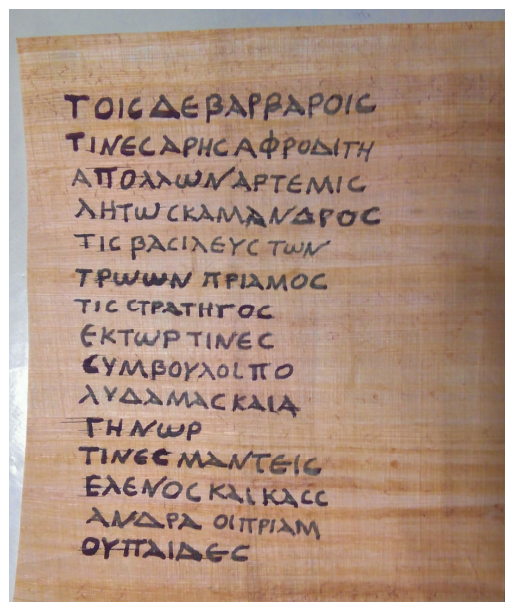 ΤΟΙϹΔΕΒΑΡΒΑΡΟΙϹ
ΤΙΝΕϹΑΡΗϹΑΦΡΟΔΙΤΗ
ΑΠΟΛΛωΝΑΡΤΕΜΙϹ
ΛΗΤωϹΚΑΜΑΝΔΡΟϹ
ΤΙϹ ΒΑϹΙΛΕΥϹ ΤωΝ
ΤΡωωΝ ΠΡΙΑΜΟϹ
ΤΙϹ ϹΤΡΑΤΗΓΟϹ
ΕΚΤωΡ ΤΙΝΕϹ
ϹΥΜΒΟΥΛΟΙ ΠΟ
ΛΥΔΑΜΑϹ ΚΑΙ Α
ΓΗΝωΡ
ΤΙΝΕϹ ΜΑΝΤΕΙϹ
ΕΛΕΝΟϹ ΚΑΙ ΚΑϹϹ
ΑΝΔΡΑ ΟΙ ΠΡΙΑΜ
ΟΥ ΠΑΙΔΕϹ